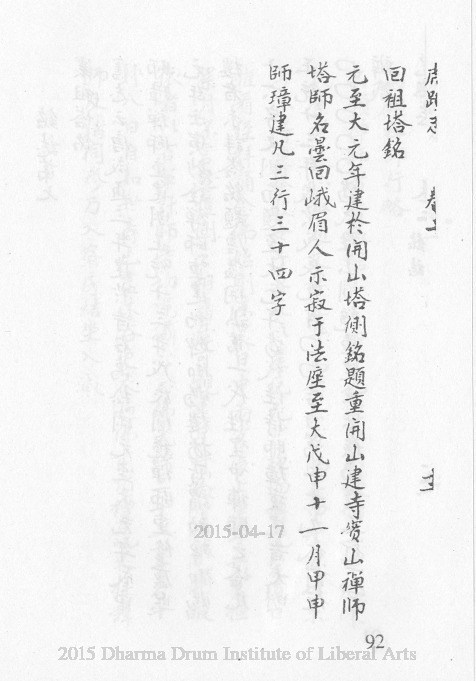 回祖塔銘
元至大元年建於開山塔側銘題重開山建寺寶山禪師
塔師名曇回峨眉人示寂于法座至大戊申十一月甲申
師璋建凡三行三十四字
2015-04-17
92
2015 Dharma Drum Institute of Liberal Arts